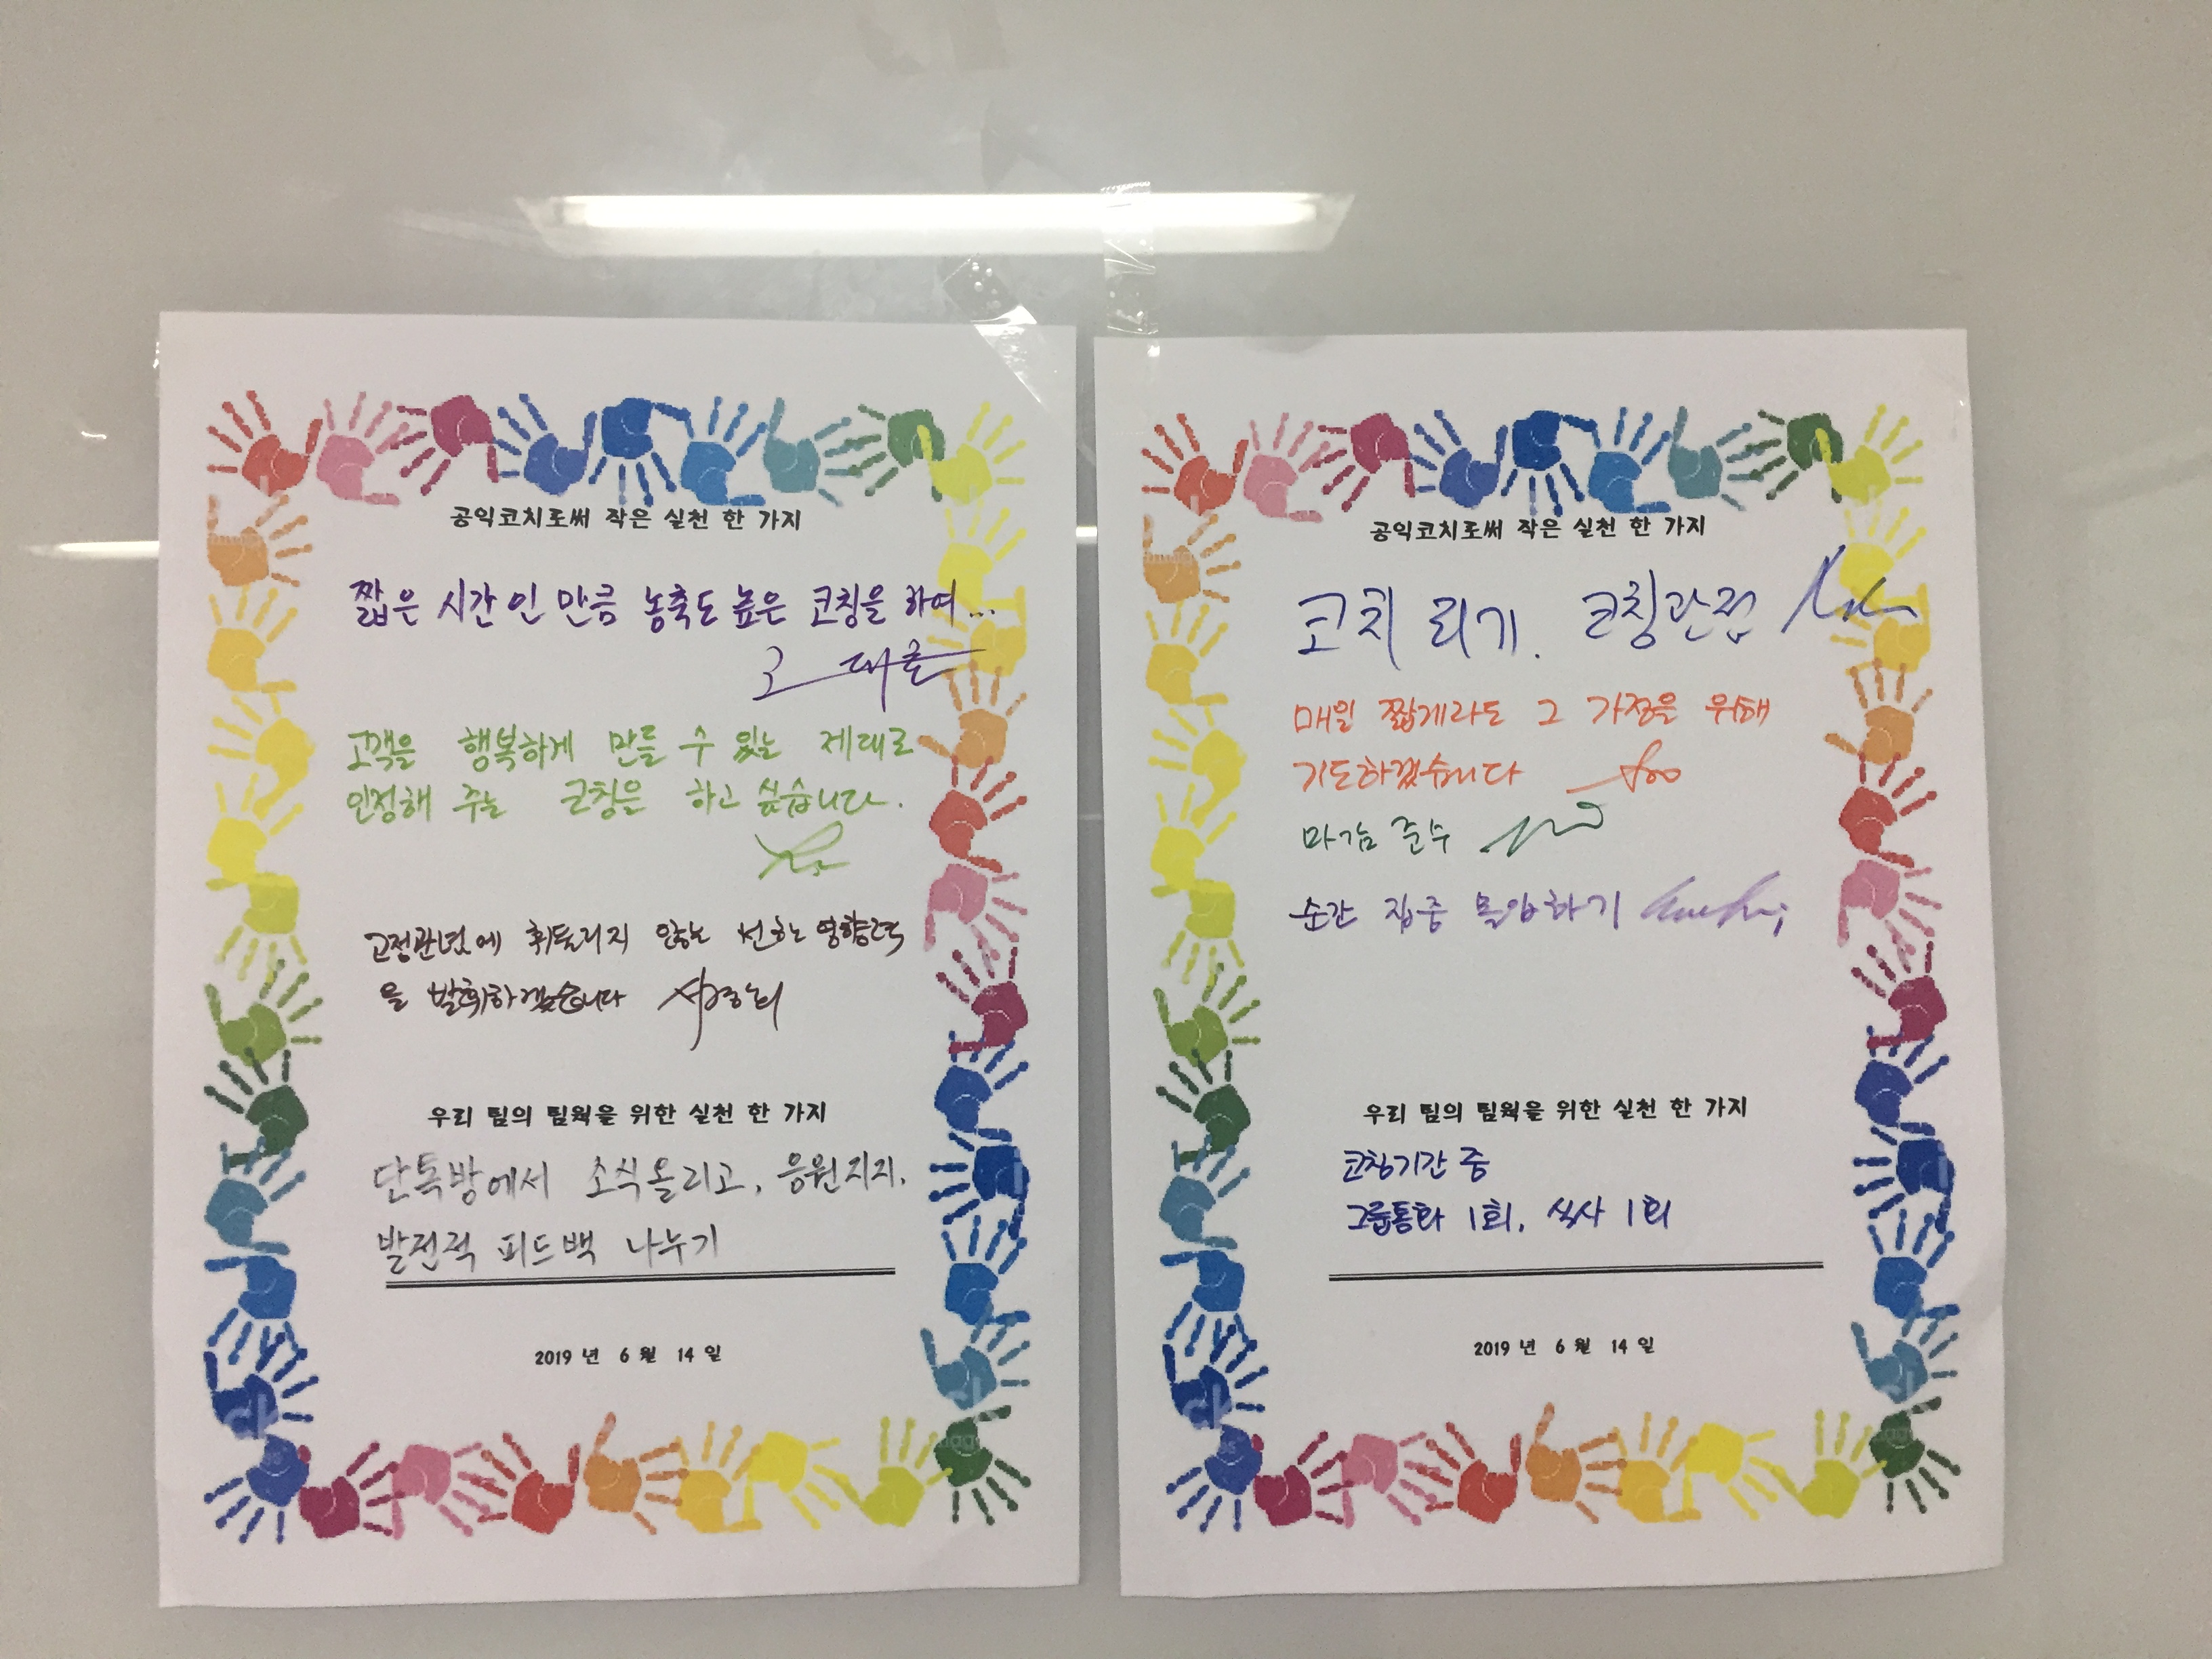 공익코치로써 작은 실천 한 가지
짧은 시간인 만큼 농축도 높은 코칭을 하여...
고객을 행복하게 만들 수 있는 제대로
인정해 주는 코칭을 하고 싶습니다.
고정관념에 휘둘리지 않는 선한 영향력
을 발휘하겠습니다
우리 팀의 팀웍을 위한 실천 한 가지
단톡방에서 소식올리고, 응원지지,
발전적 피드백 나누기
2019 년 6 월 14 일
공익코치로써 작은 실천 한 가지
코치 되기. 코칭관점
매일 짧게라도 그 가정을 위해
기도하겠습니다
마감 준수
순간 집중 몰입하기
우리 팀의 팀웍을 위한 실천 한 가지
코칭기간 중
그룹통화 1회, 식사 1회
2019 년 6 월 14 일